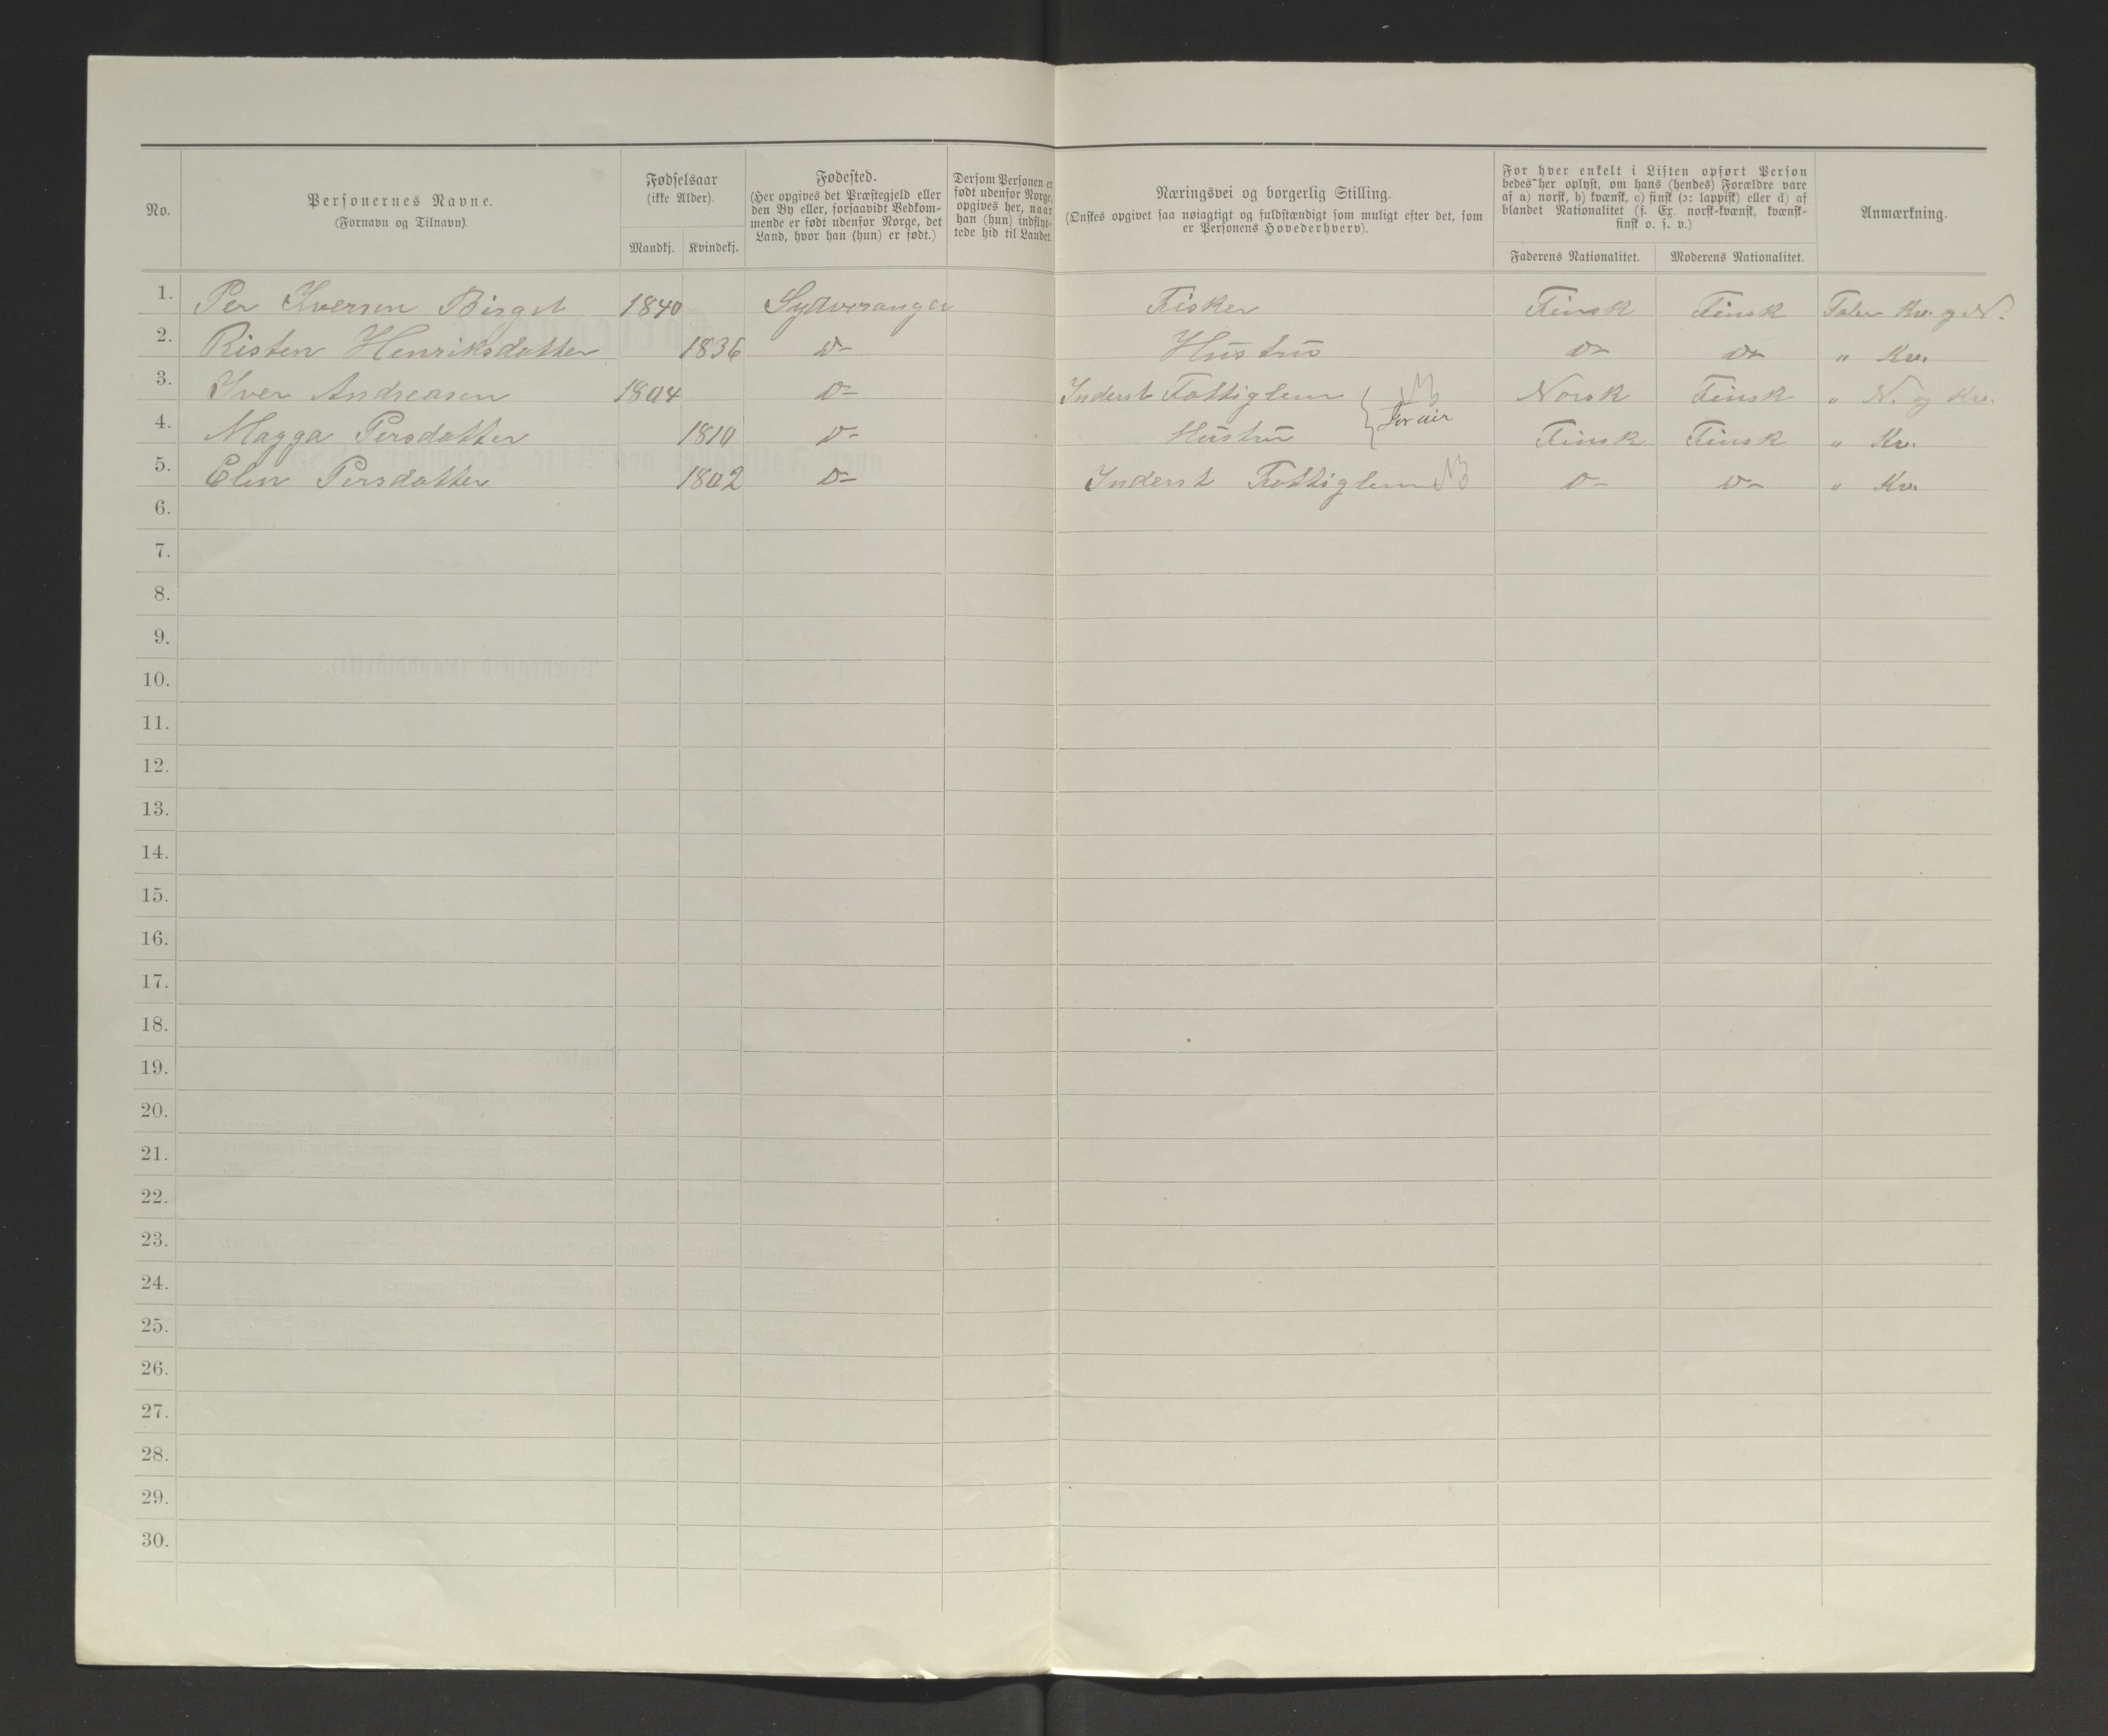 No.
Personernes Navne.
(Fornavn og Tilnavn).
Fødselsaar
(ikke Alder).
Mandkj. Kvindekj.
Fødested.
(Her opgives det Præstegjeld eller
den By eller, forsaavidt Vedkom-
mende er født udenfor Norge, det
Land, hvor han (hun) er født.)
Dersom Personen er
født udenfor Norge,
opgives her, naar
han (hun) indflyt-
tede hid til Landet.
Næringsvei og borgerlig Stilling.
(Ønskes opgivet saa nøiagtigt og fuldstændigt som muligt efter det, som
er Personens Hovederhverv).
For hver enkelt i Listen opført Person
bedes her oplyst, om hans (hendes) Forældre vare
af a) norsk, b) kvænsk, c) finsk (ɔ: lappisk) eller d) af
blandet Nationalitet (f. Ex. norsk-kvænsk, kvænsk-
finsk o. s. v.)
Faderens Nationalitet. Moderens Nationalitet.
Anmærkning.
1. Per Iversen Birget 1840 Sydvaranger Fisker Finsk Finsk Taler Kv. og N.
2. Risten Henriksdatter 1836 D- Hustru D- D- " Kv.
3. Iver Andreasen 1804 D- Inderst Fattiglem Norsk Finsk " N. og Kv.
4. Magga Persdatter 1810 D- Hustru Finsk Finsk " Kv.
5. Elen Persdatter 1802 D- Inderst Fattiglem D- D- " Kv.
6.
7.
8.
9.
10.
11.
12.
13.
14.
15.
16.
17.
18.
19.
20.
21.
22.
23.
24.
25.
26.
27.
28.
29.
30.